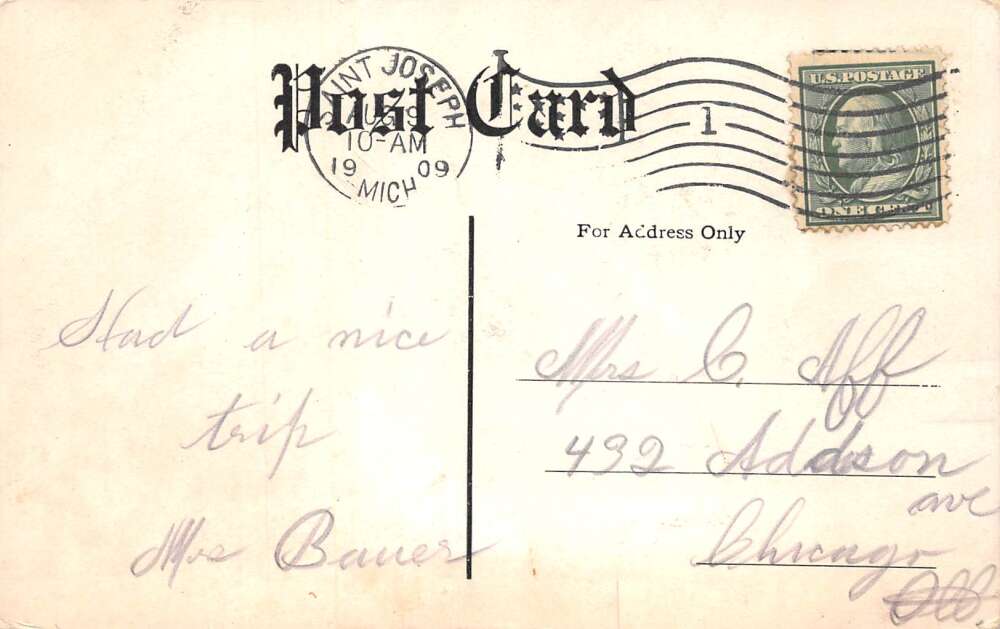 Post Card
SAINT JOSEPH
AUG 9
10-AM
1909
MICH
1
U.S. POSTAGE
ONE CENT
For Address Only
Had a nice
trip
Mrs Bauer
Mrs C. Aff
432 Addson
ave
Chicago
Ill.